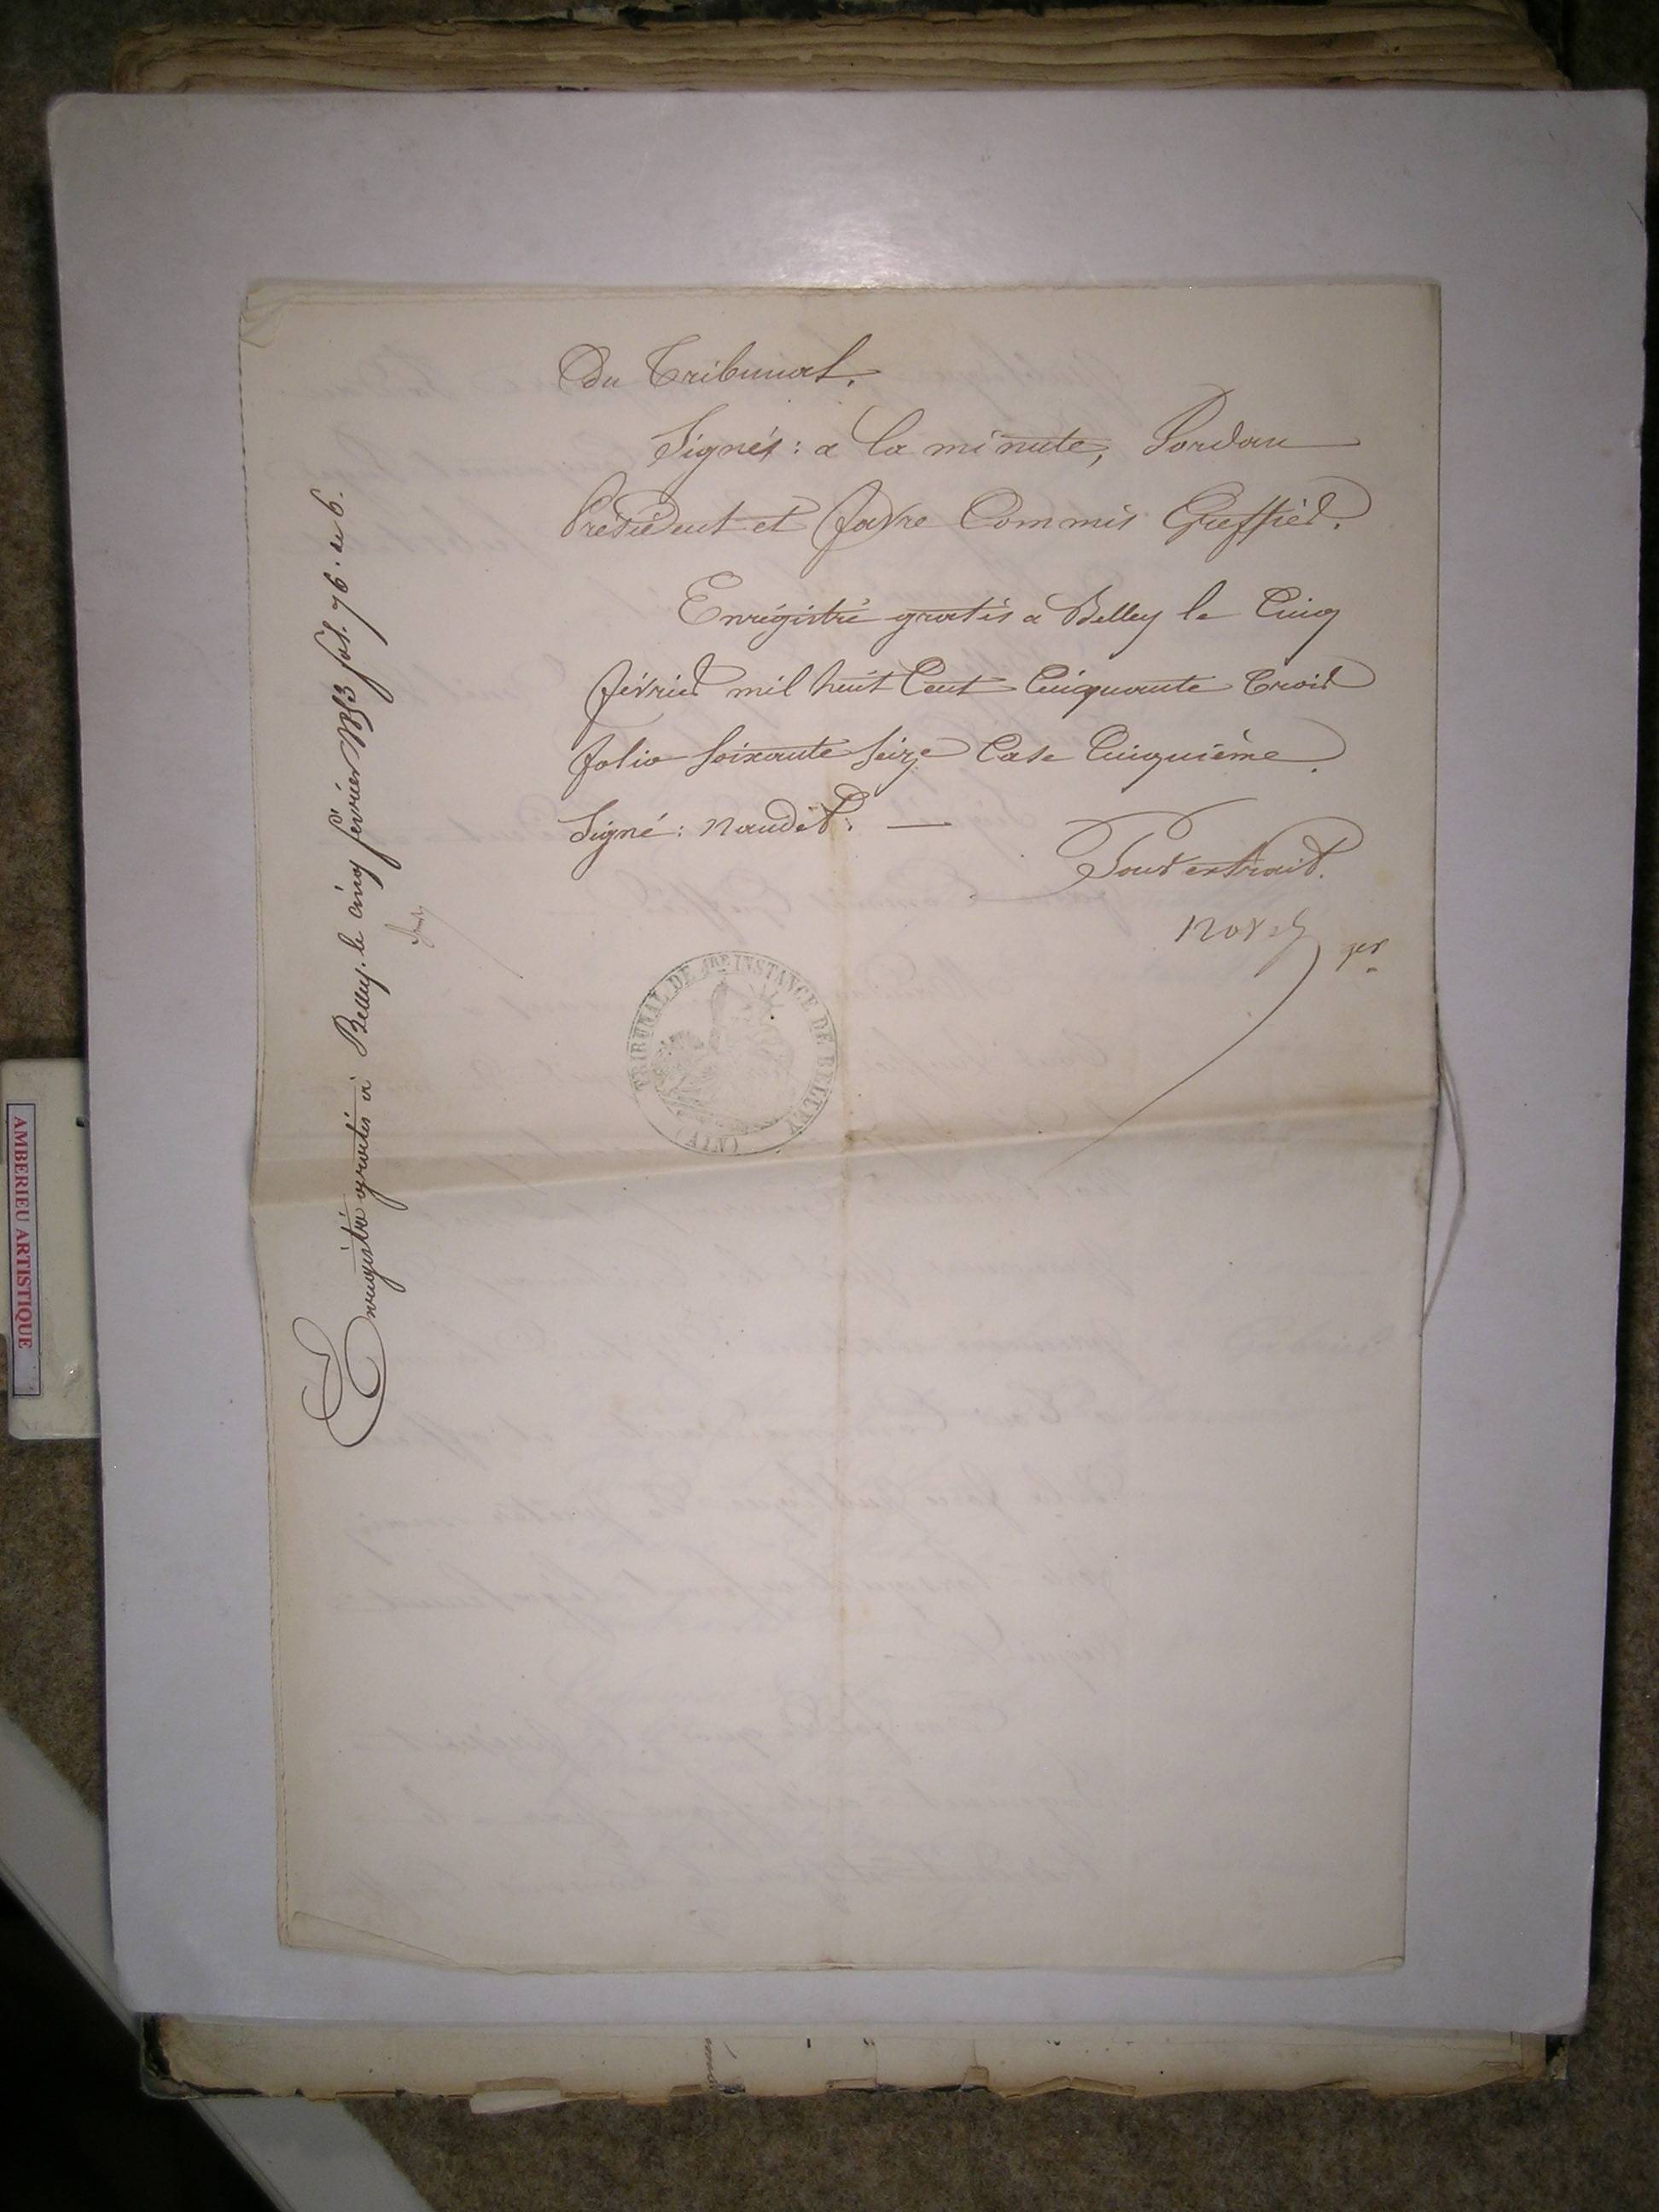 Du Tribunal.
Signés : a la minute, Jordan
Président et Favre Commis Greffier.
Enrégistré gratis à Belley le Cinq
février mil huit Cent Cinquante trois
folio Soixante Seize Case Cinquième.
Signé : Naudet. —
Pour extrait.
Enregistré gratis à Belley. le cinq février 1853 fol. 76. c. 6.
TRIBUNAL DE 1RE INSTANCE DE BELLEY
(AIN)
AMBERIEU ARTISTIQUE